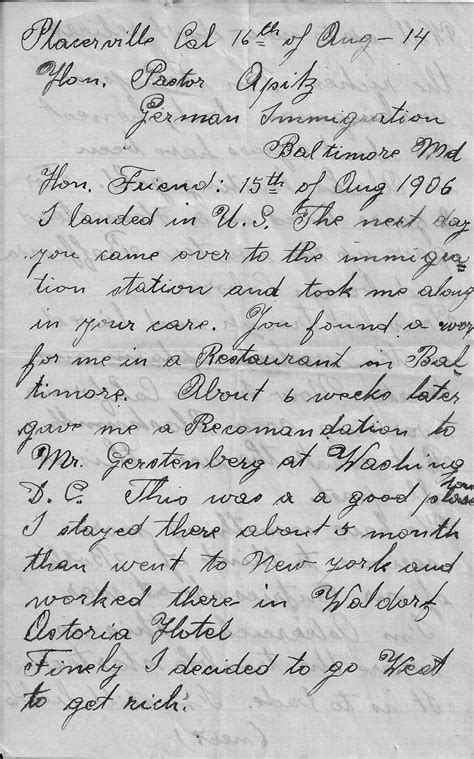 Placerville Cal 16th of Aug - 14
Hon. Pastor Apitz
German Immigration
Baltimore Md
Hon. Friend: 15th of Aug 1906
I landed in U.S. The next day
you came over to the immigra-
tion station and took me along
in your care. You found a work
for me in a Restaurant in Bal-
timore. About 6 weeks later
gave me a Recomandation to
Mr. Gerstenberg at Washing
D.C. This was a a good place
I stayed there about 5 month
than went to New York and
worked there in Waldorf
Astoria Hotel
Finely I decided to go West
to get rich.